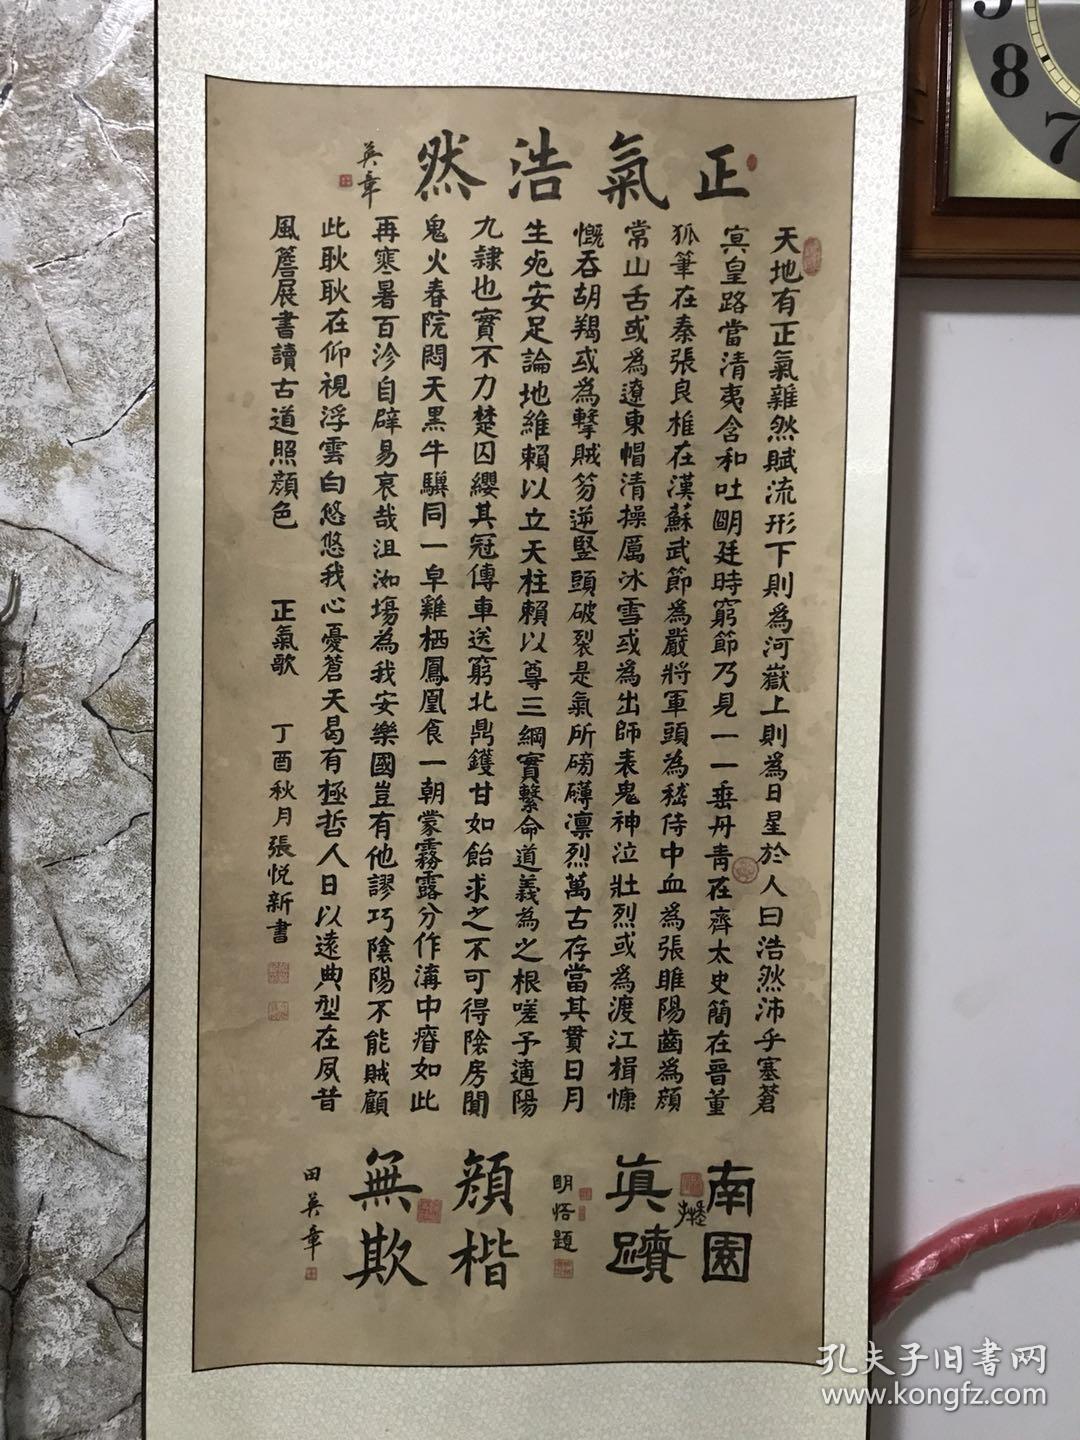 正氣浩然
英章
天地有正氣雜然賦流形下則為河嶽上則為日星於人曰浩然沛乎塞蒼
冥皇路當清夷含和吐明廷時窮節乃見一一垂丹青在齊太史簡在晉董
狐筆在秦張良椎在漢蘇武節為嚴將軍頭為嵇侍中血為張睢陽齒為顏
常山舌或為遼東帽清操厲冰雪或為出師表鬼神泣壯烈或為渡江楫慷
慨吞胡羯或為擊賊笏逆豎頭破裂是氣所磅礡凛烈萬古存當其貫日月
生死安足論地維賴以立天柱賴以尊三綱實繫命道義為之根嗟予遘陽
九隷也實不力楚囚纓其冠傳車送窮北鼎鑊甘如飴求之不可得陰房闃
鬼火春院閟天黑牛驥同一皁雞栖鳳凰食一朝蒙霧露分作溝中瘠如此
再寒暑百沴自辟易哀哉沮洳塲為我安樂國豈有他謬巧陰陽不能賊顧
此耿耿在仰視浮雲白悠悠我心憂蒼天曷有極哲人日以遠典型在夙昔
風簷展書讀古道照顏色 正氣歌 丁酉秋月張悦新書
南園
真蹟
明悟題
顔楷
無欺
田英章
8
7
孔夫子旧書网
www.kongfz.com